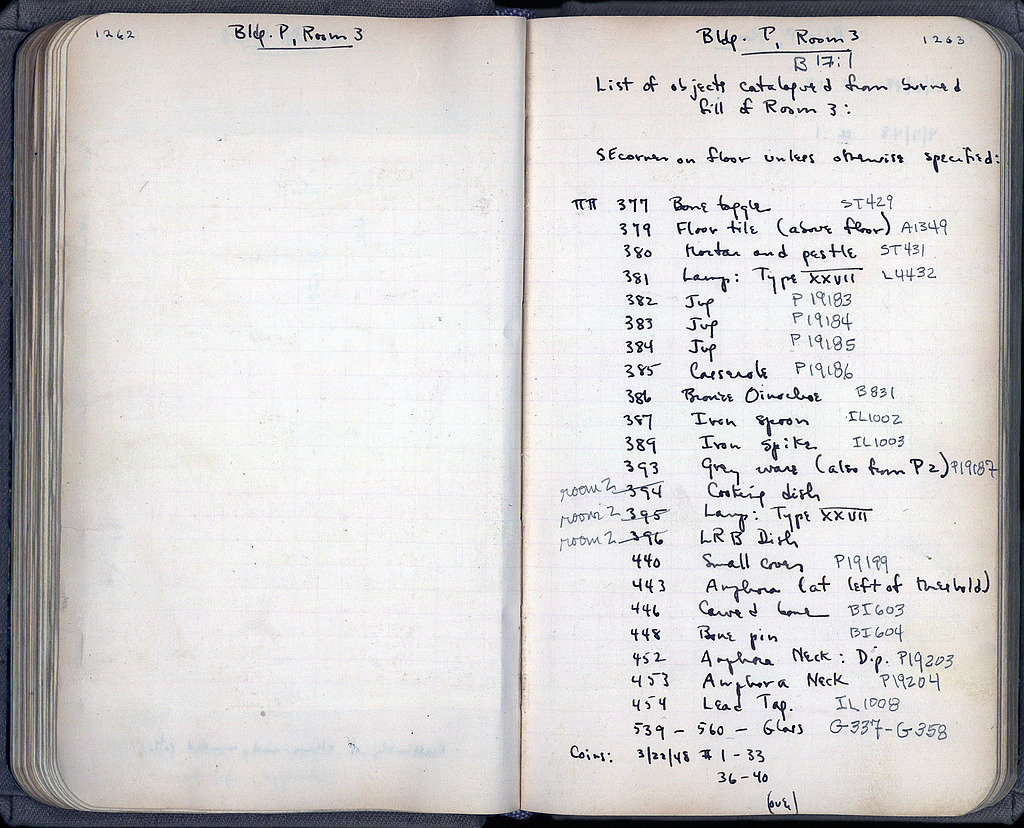 1262
Bldg. P, Room 3
Bldg. P, Room 3 1263
B 17:1
List of objects catalogued from burned
fill of Room 3:
SE corner on floor unless otherwise specified:
ΠΠ 377 Bone toggle ST429
379 Floor tile (above floor) A1349
380 Mortar and pestle ST431
381 Lamp: Type XXVII L4432
382 Jug P19183
383 Jug P19184
384 Jug P19185
385 Casserole P19186
386 Bronze Oinochoe B831
387 Iron spoon IL1002
389 Iron spike IL1003
393 Grey ware (also from P2) P19187
room 2 394 Cooking dish
room 2 395 Lamp: Type XXVII
room 2 396 LRB Dish
440 Small cover P19199
443 Amphora (at left of threshold)
446 Carved bone BI603
448 Bone pin BI604
452 Amphora Neck: Dip. P19203
453 Amphora Neck P19204
454 Lead Tag. IL1008
539 - 560 - Glass G337-G358
Coins: 3/22/48 # 1-33
36-40
(over)